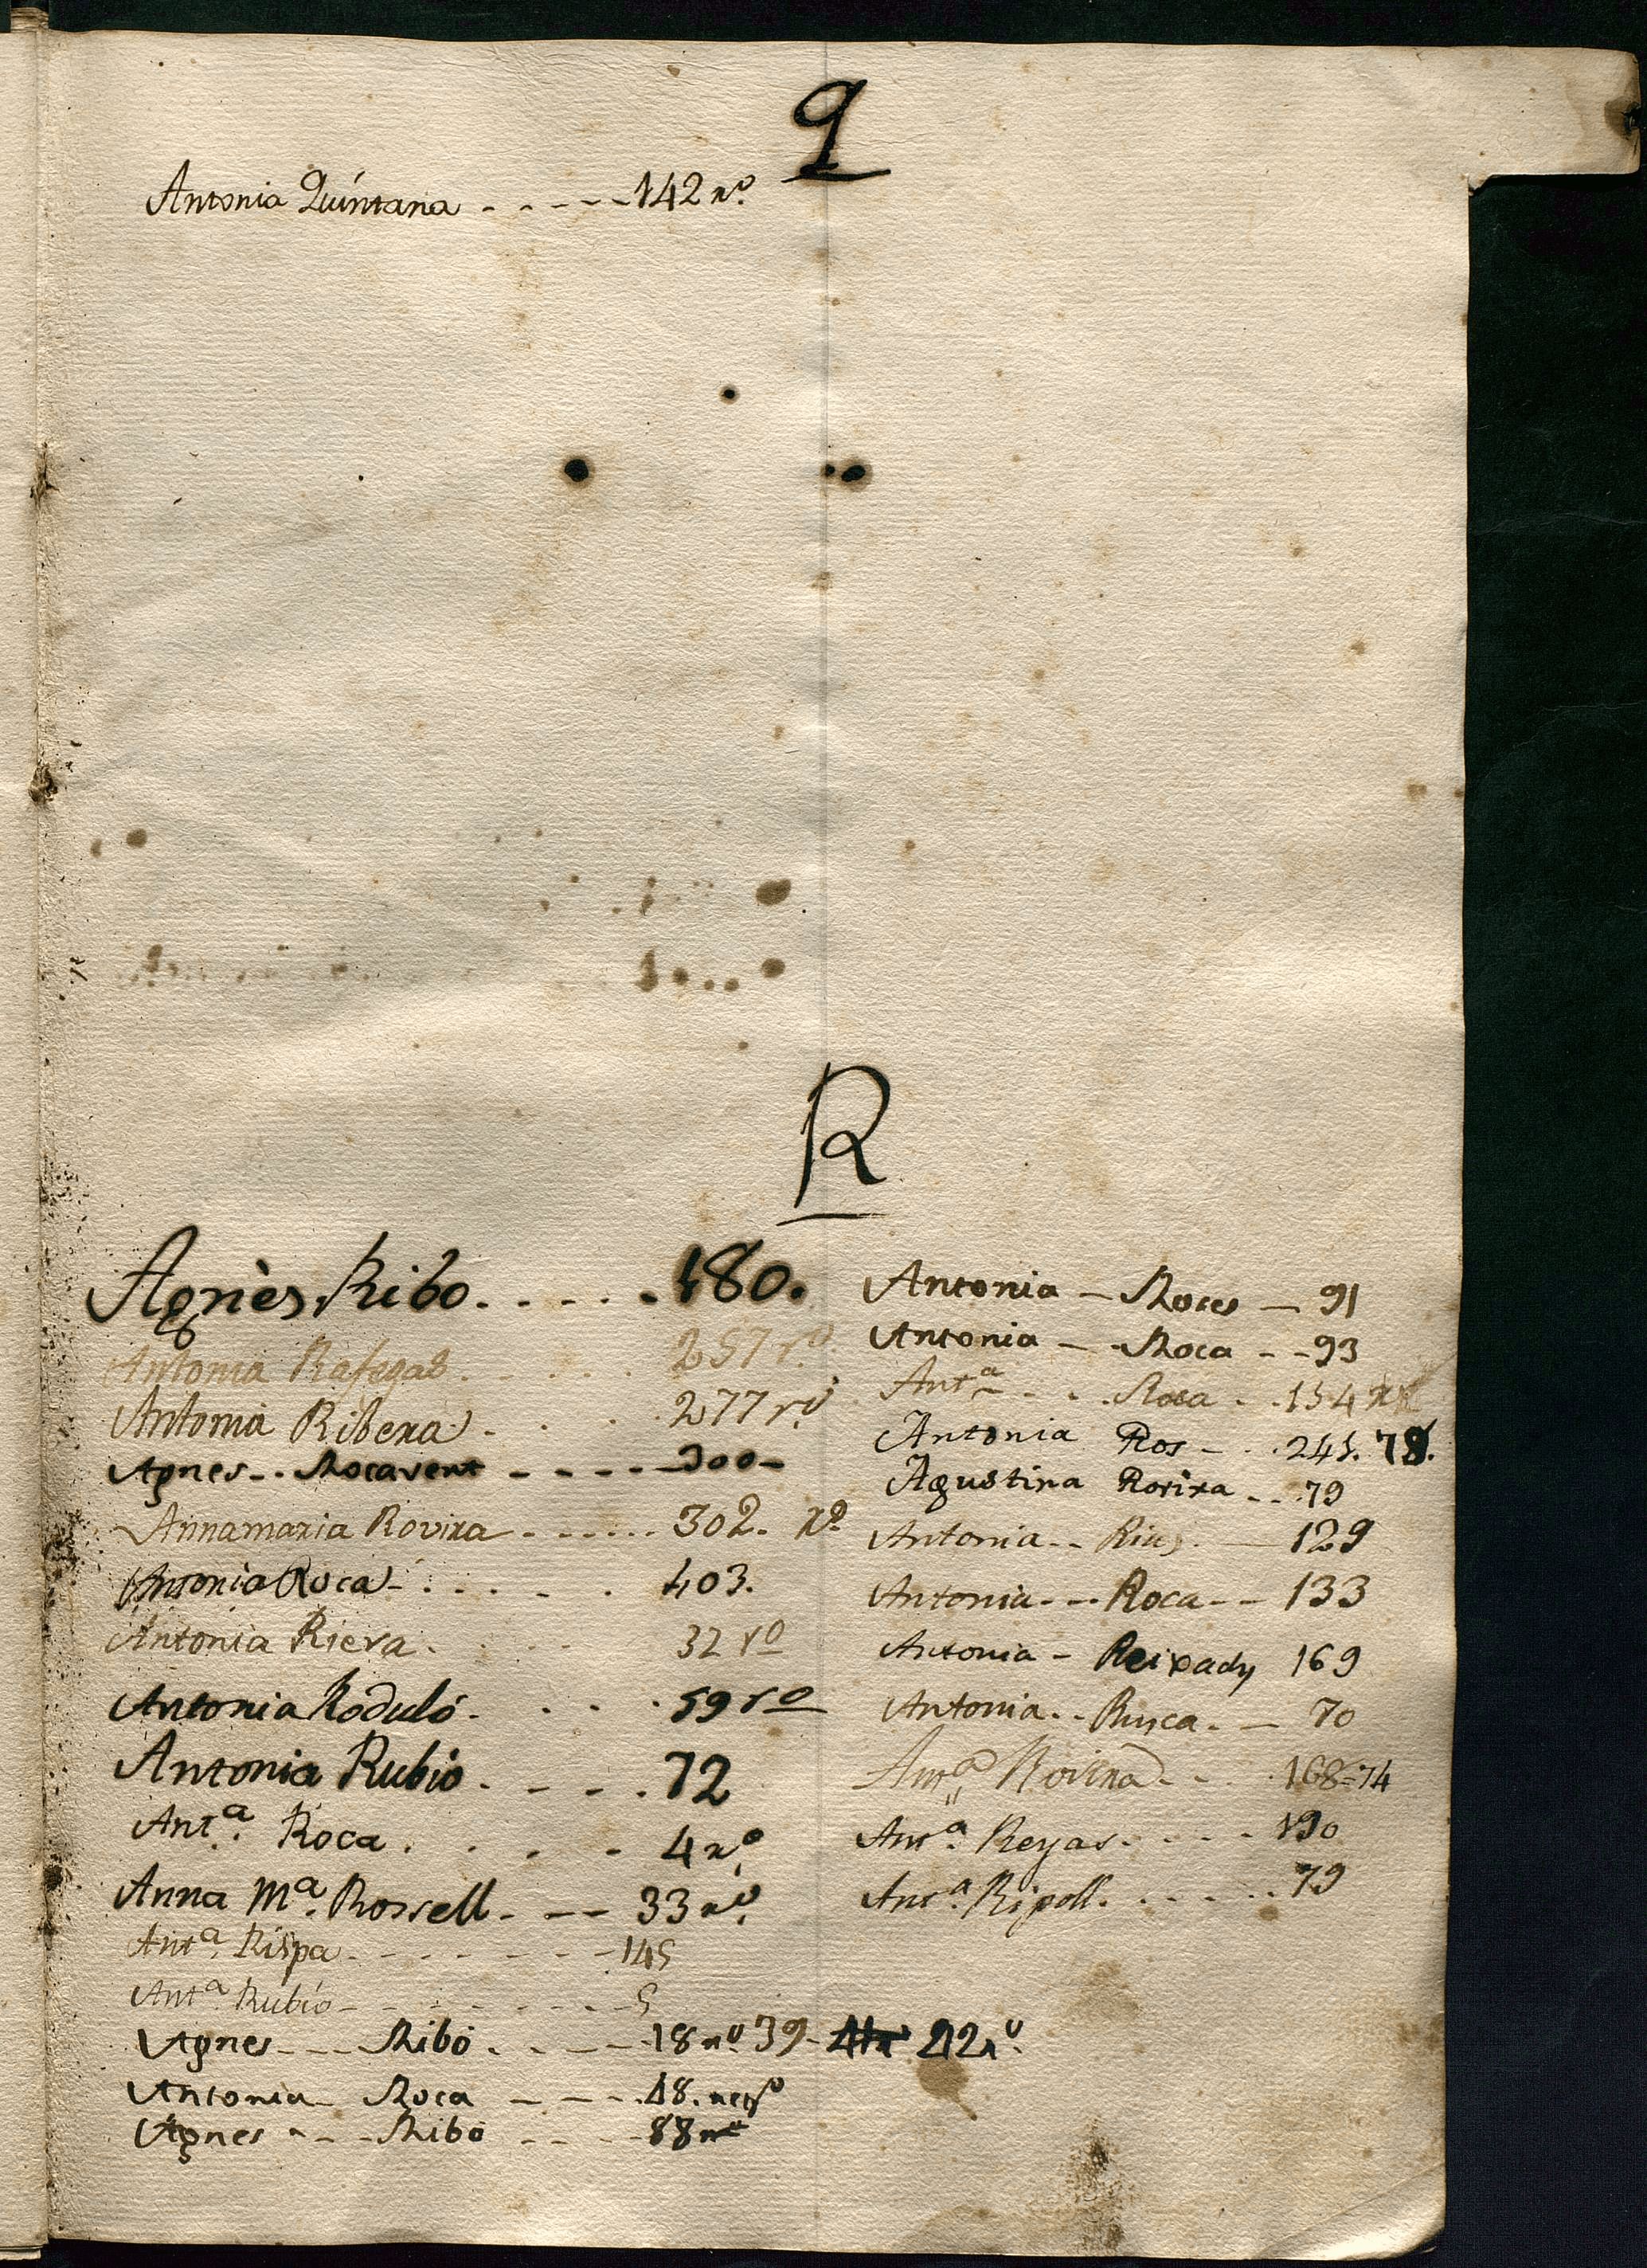 q
Antonia Quintana - - - - - 142 rº
R
Agnès Ribo. - - - - . 180.
Antonia Rafegas. - . . . . 257 rº
Antonia Ribera . . . . 277 rº
Agnes - . Rocavert - - - - - 300 -
Annamaria Rovira - - - - - . . 302. rº
Antonia Roca - . . . - . 403.
Antonia Riera. . . . 32 rº
Antonia Roduló. . . . . 59 rº
Antonia Rubio. - - - . 72
Antª. Roca . . . . - 4 rº
Anna Mª. Rossell - - - - 33 rº
Antª. Rispa - - - - - - - - 145
Antª. Rubio - - - - - - - - 5
Agnes - - - Ribó . - - - - 18 rº 39 - 42 rº
Antonia - Roca - - - . 48.
Agnes - - - Ribó - - - - 88
Antonia - Roces - 91
Antonia - - Roca - - 93
Antª - . . Roca . . 154
Antonia Ros - . . 245. 78.
Agustina Rovira - . . 79
Antonia - - Rius. - 129
Antonia - - - Roca - - 133
Antonia - Reixachy 169
Antonia. . - Rusca. - 70
Antª. Rovira - . . . 168=74
Antª. Reyas. . - . - 190
Antª. Ripoll. . . - . . . 79